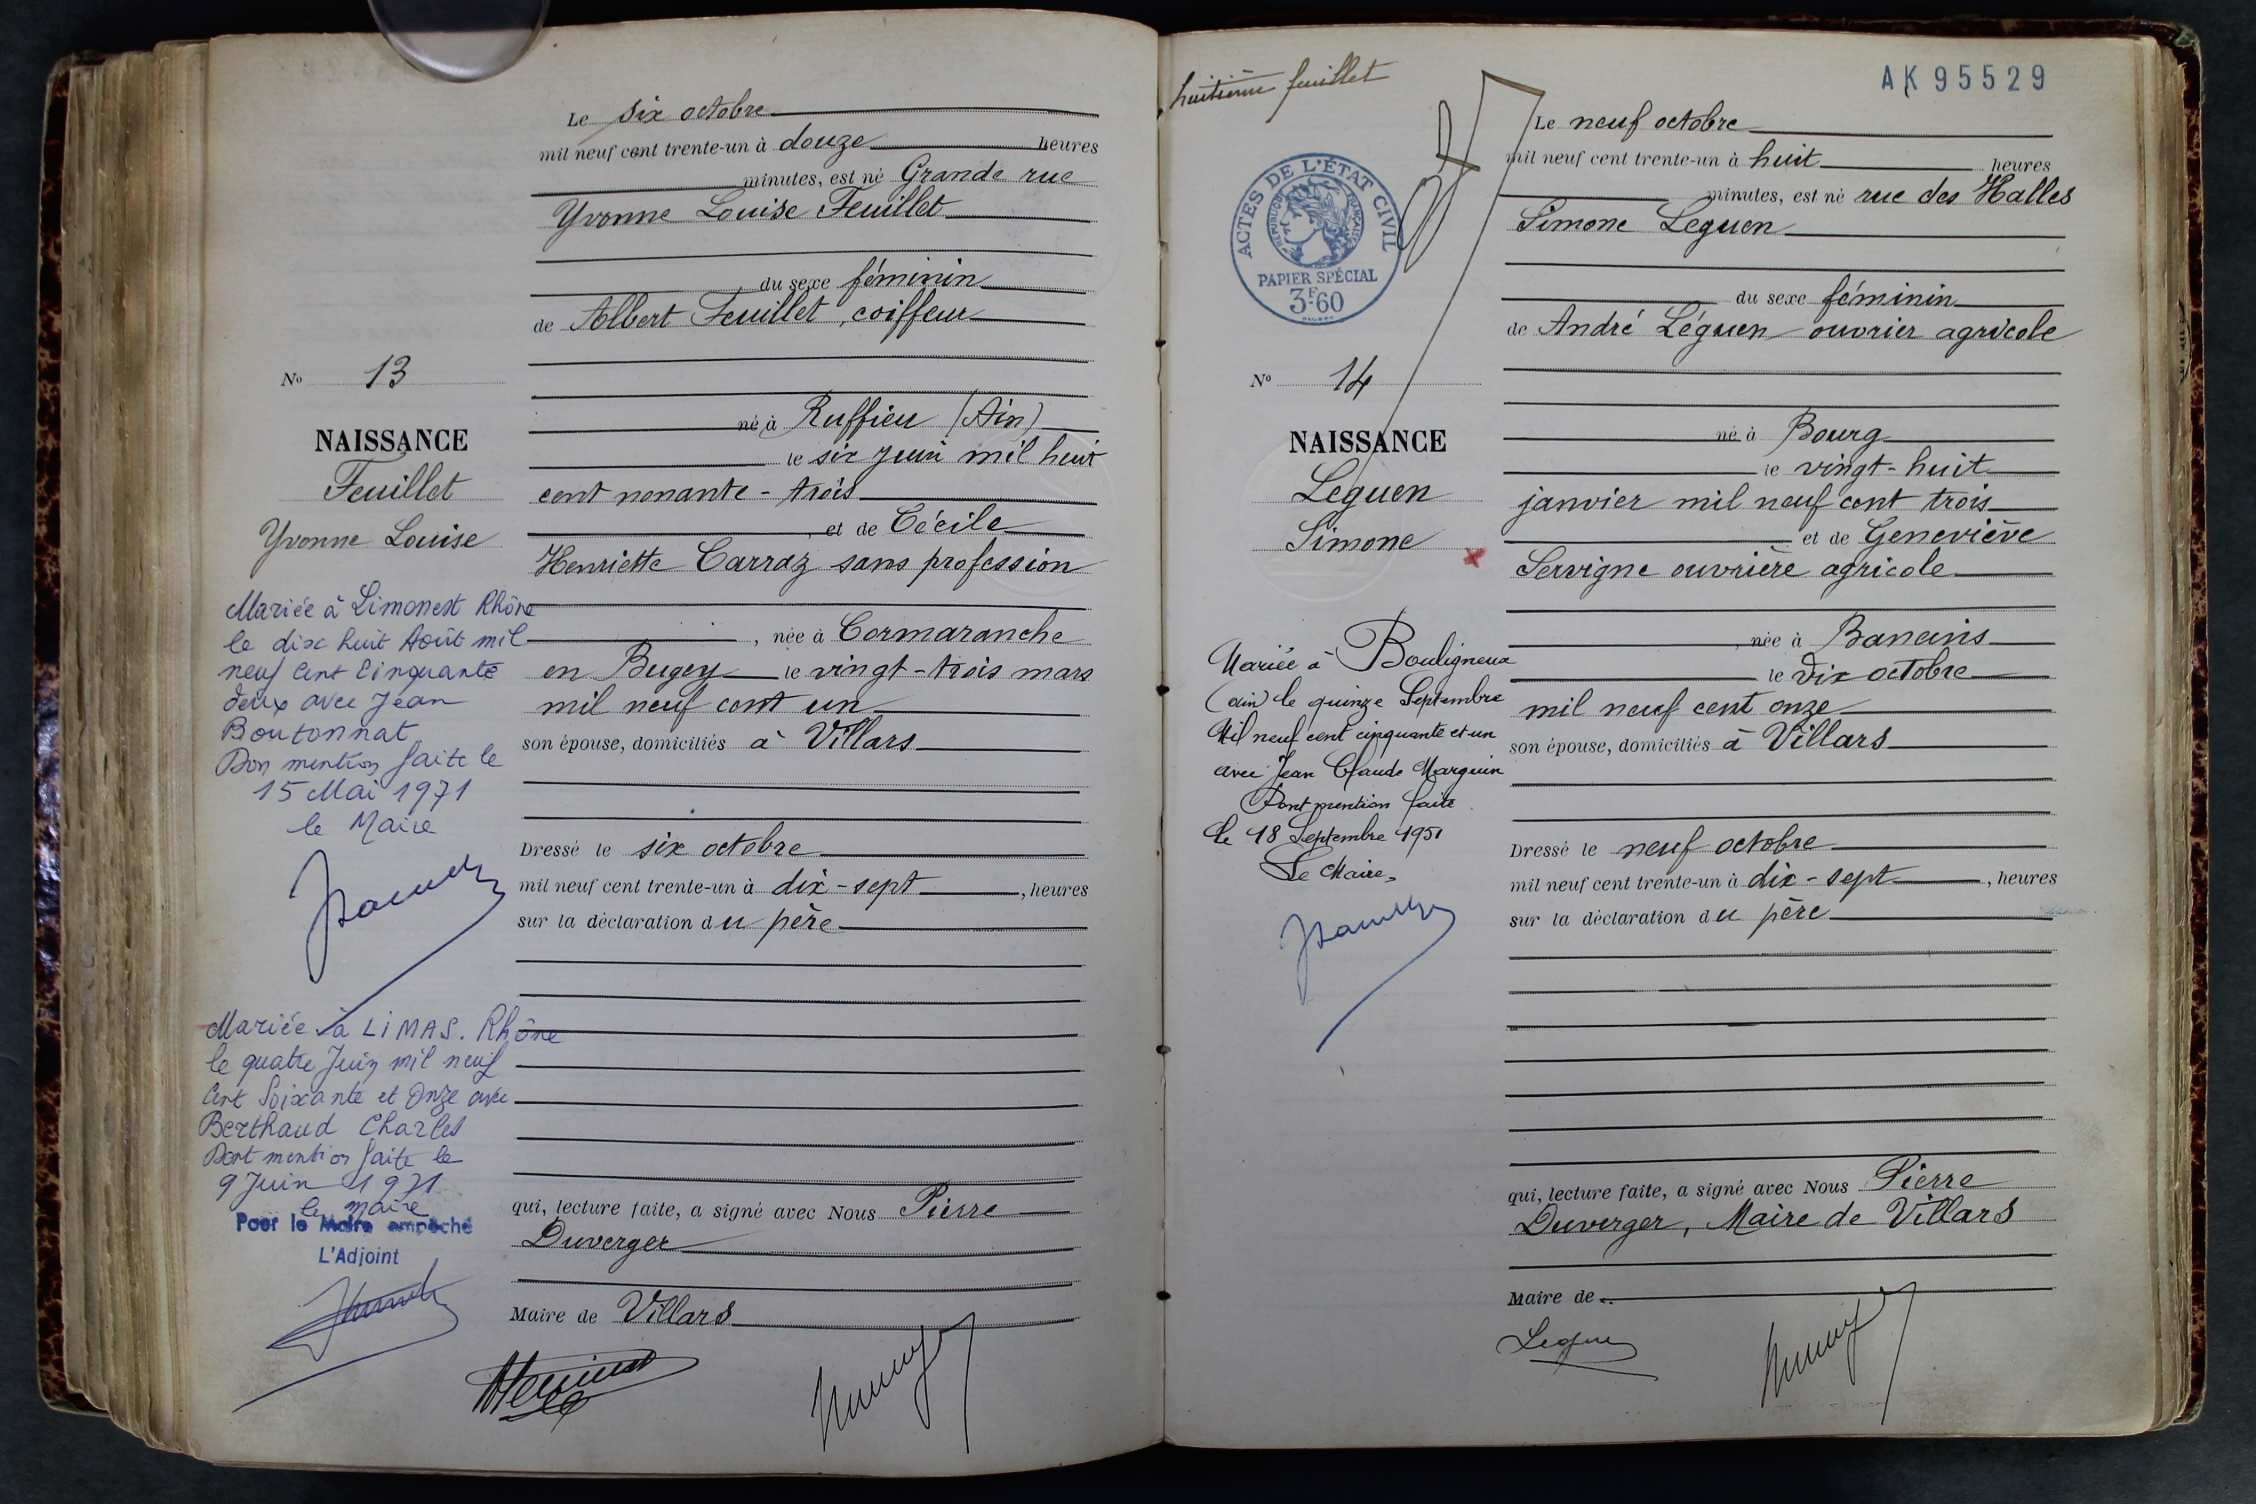 Le six octobre
mil neuf cent trente-un à douze heures
minutes, est né Grande rue
Yvonne Louise Feuillet
du sexe féminin
de Albert Feuillet, coiffeur
né à Ruffieu (Ain)
le six juin mil huit
cent nonante-trois
, et de Cécile
Henriette Carraz sans profession
, née à Cormaranche
en Bugey le vingt-trois mars
mil neuf cent un
son épouse, domiciliés à Villars
Dressé le six octobre
mil neuf cent trente-un à dix-sept, heures
sur la déclaration du père
qui, lecture faite, a signé avec Nous Pierre
Duverger
Maire de Villars
No 13
NAISSANCE
Feuillet
Yvonne Louise
Mariée à Limonest Rhône
le dix huit Août mil
neuf Cent Cinquante
deux avec Jean
Boutonnat
Don mention faite le
15 Mai 1971
le Maire
Mariée à LIMAS. Rhône
le quatre Juin mil neuf
Cent Soixante et Onze avec
Berthaud Charles
Dont mention faite le
9 Juin 1971
le maire
Pour le Maire empêché
L'Adjoint
huitième feuillet
AK95529
ACTES DE L'ÉTAT CIVIL
RÉPUBLIQUE FRANÇAISE
PAPIER SPÉCIAL
3F.60
Le neuf octobre
mil neuf cent trente-un à huit heures
minutes, est né rue des Halles
Simone Leguen
du sexe féminin
de André Léguen ouvrier agricole
né à Bourg
le vingt-huit
janvier mil neuf cent trois
et de Geneviève
Servigne ouvrière agricole
, née à Baneins
le dix octobre
mil neuf cent onze
son épouse, domiciliés à Villars
Dressé le neuf octobre
mil neuf cent trente-un à dix-sept, heures
sur la déclaration du père
qui, lecture faite, a signé avec Nous Pierre
Duverger, Maire de Villars
Maire de
Leguen
No 14
NAISSANCE
Leguen
Simone
Mariée à Bouligneux
(ain) le quinze Septembre
Mil neuf cent cinquante et un
avec Jean Claude Marguin
Dont mention faite
le 18 Septembre 1951
Le Maire,